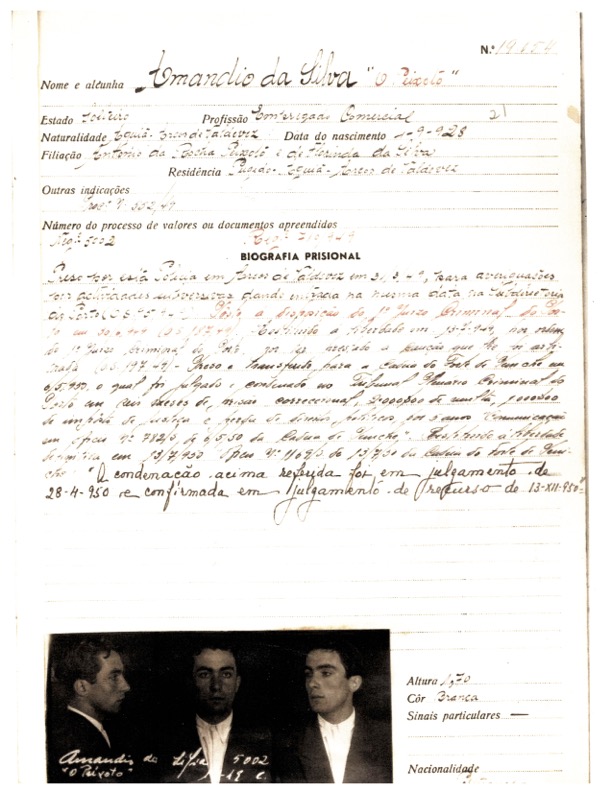 N.º 19.054
Nome e alcunha Amandio da Silva "O Peixoto"
Estado Solteiro Profissão Empregado Comercial 21
Naturalidade Aguiã-Arcos de Valdevez Data do nascimento 1-9-928
Filiação António da Rocha Peixoto e de Florinda da Silva
Residência Aguiã-Arcos de Valdevez
Outras indicações
Procº Nº 302/49
Número do processo de valores ou documentos apreendidos
Regº 5002 Regº
BIOGRAFIA PRISIONAL
Preso por esta Polícia em Arcos de Valdevez em 31/3/49, para averiguações
por actividades subversivas dando entrada na mesma data na Subdirectoria
do Porto Posto à disposição do 1º Juizo Criminal do Por-
to em Restituido à liberdade em por ordem
do 1º Juizo Criminal do Porto, por ter prestado a caução que lhe foi arbi-
trada Preso e transferido para a Cadeia do Forte de Peniche em
6/5/950, o qual foi julgado e condenado no Tribunal Plenario Criminal do
Porto em seis meses de prisão correccional, de multa
de imposto de justiça e perda de direitos politicos por 3 anos. Comunicação
em Ofício Nº 782/5 de 6/5/50 da Cadeia de Peniche. Restituido à liberdade
em 13/7/950. Ofício Nº de 13/7/50 da Cadeia do Forte de Peni-
che. "A condenação acima referida foi em julgamento de
28-4-950 e confirmada em julgamento de recurso de 13-XII-950"
Altura 1,70
Côr Branca
Sinais particulares —
Amandio da Silva 5002
"O Peixoto" C.
Nacionalidade